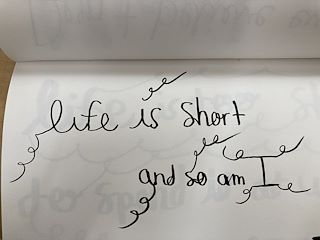 life is short
and so am I